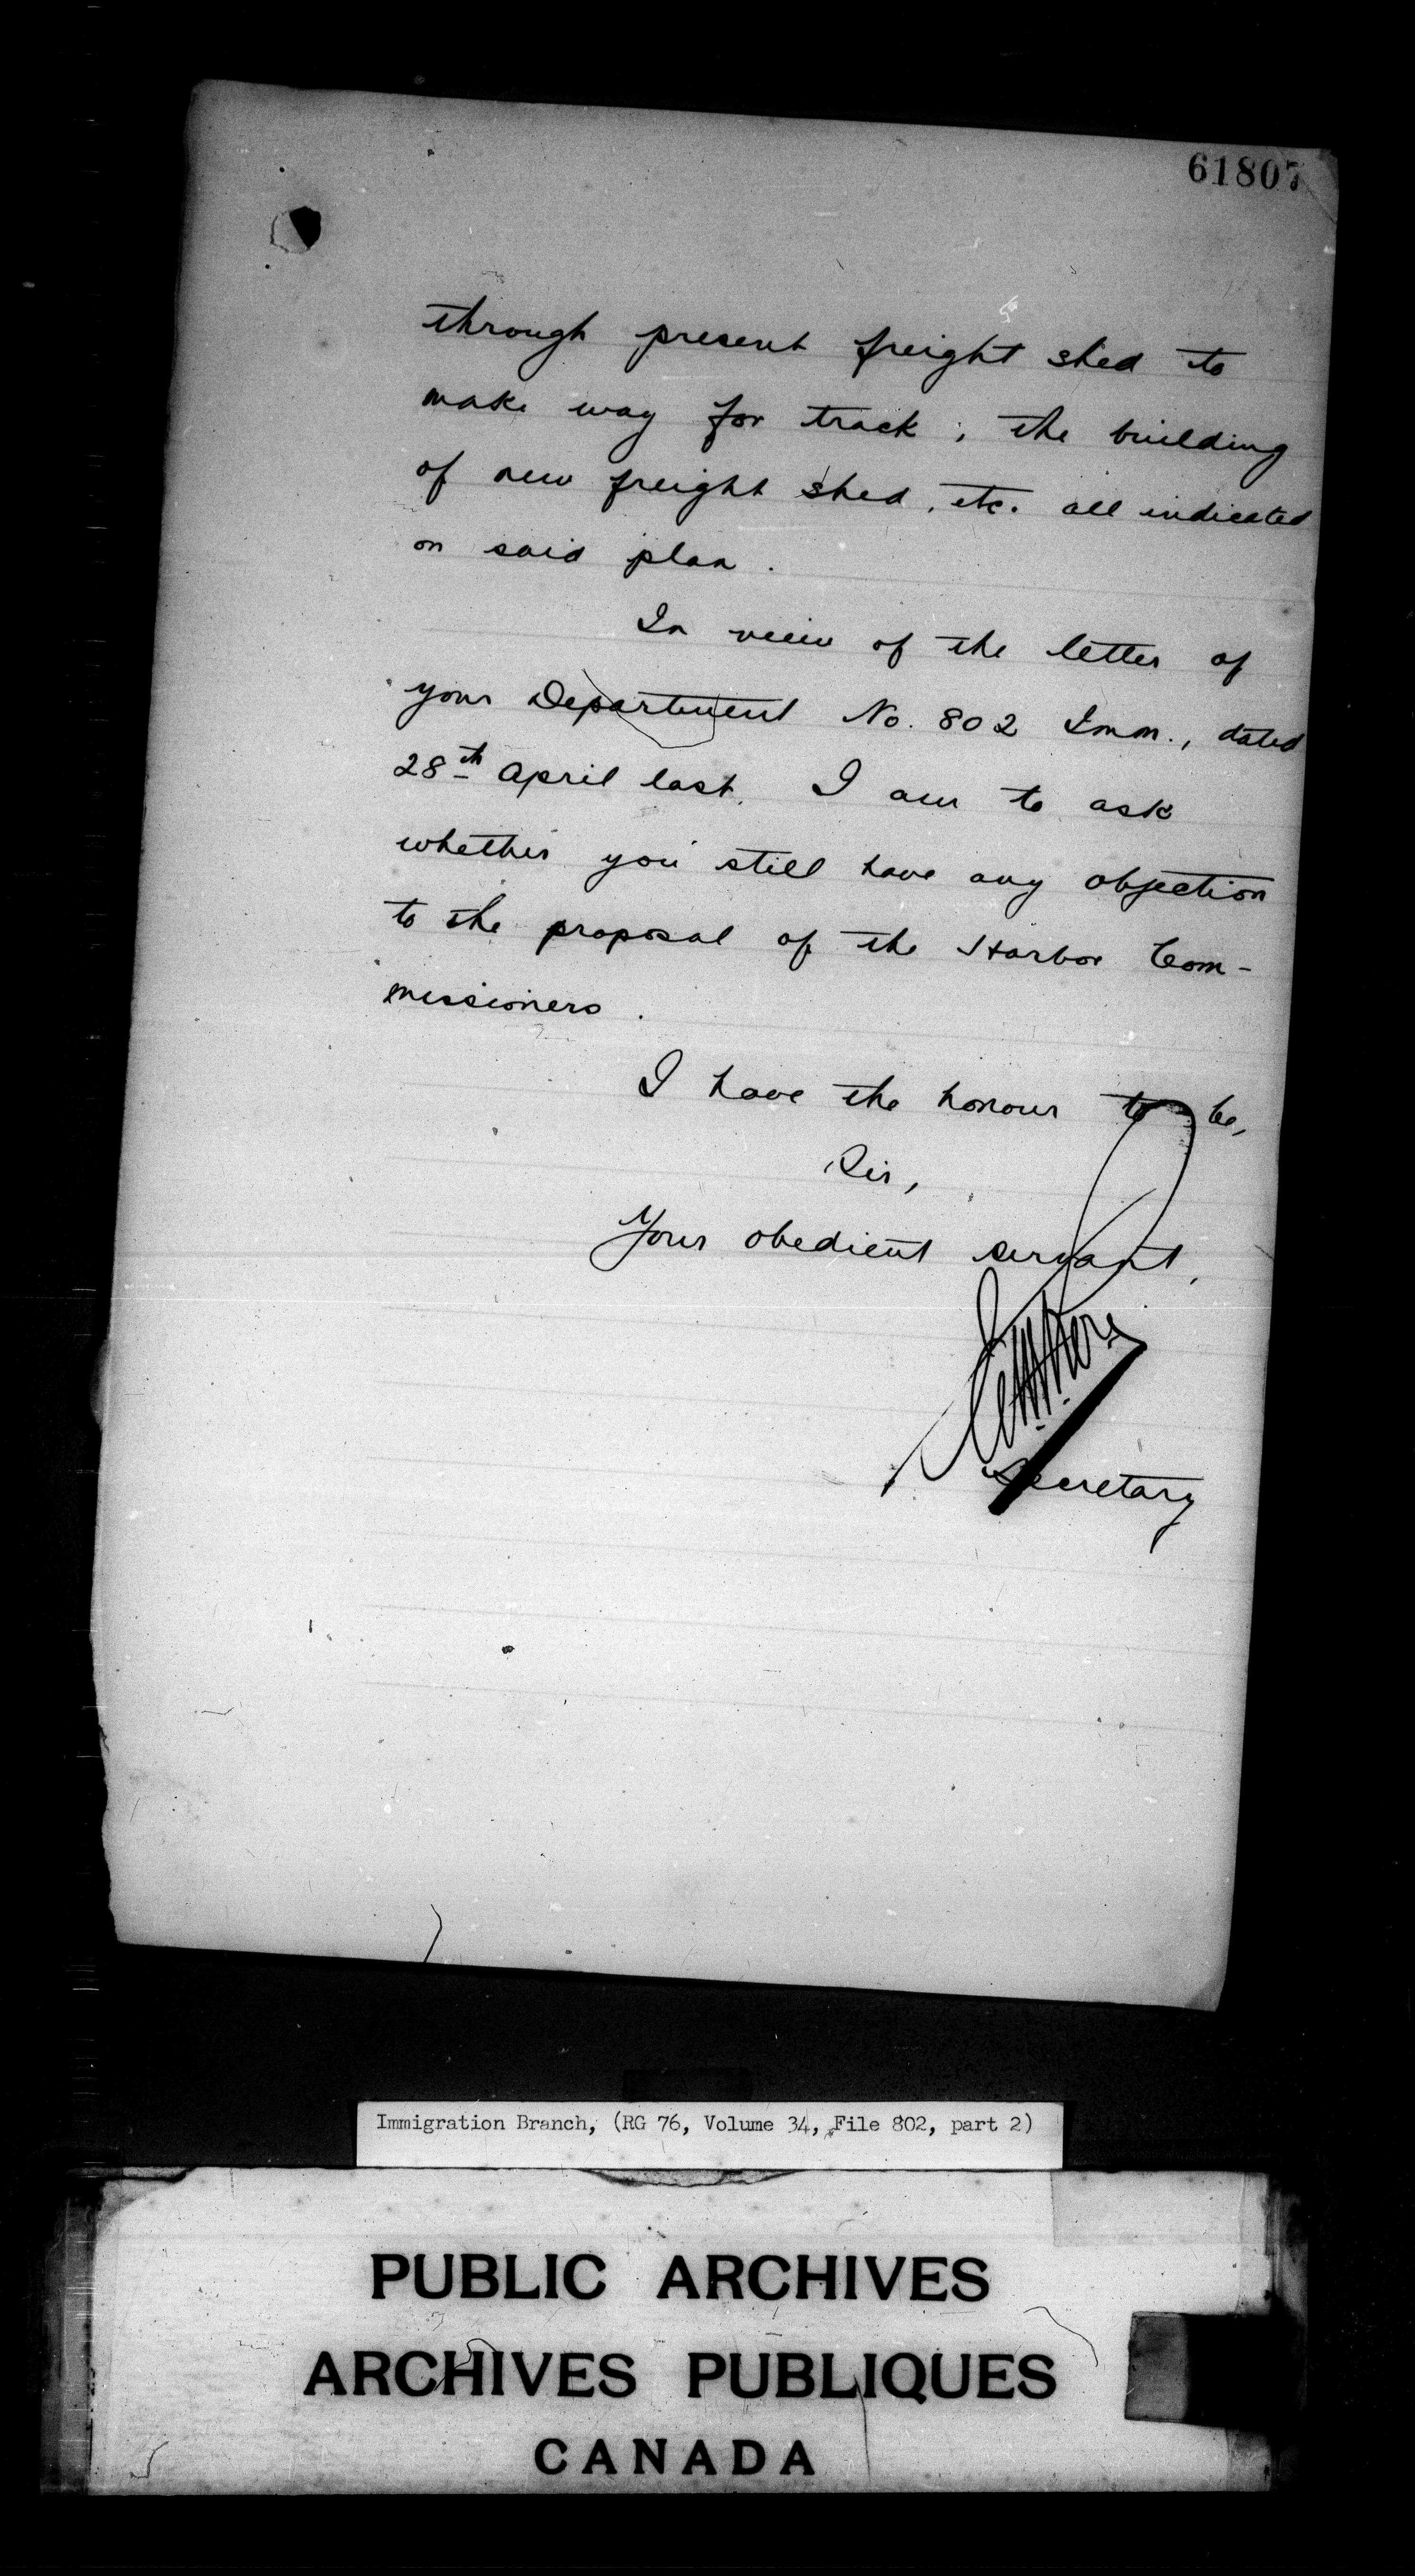 61807
through present freight shed to
make way for track ; the building
of new freight shed, etc. all indicated
on said plan.
In view of the letter of
your Department No. 802 Imm., dated
28th April last, I am to ask
whether you still have any objection
to the proposal of the Harbor Com-
missioners.
I have the honour to be,
Sir,
Your obedient servant,
Secretary
Immigration Branch, (RG 76, Volume 34, File 802, part 2)
PUBLIC ARCHIVES
ARCHIVES PUBLIQUES
CANADA